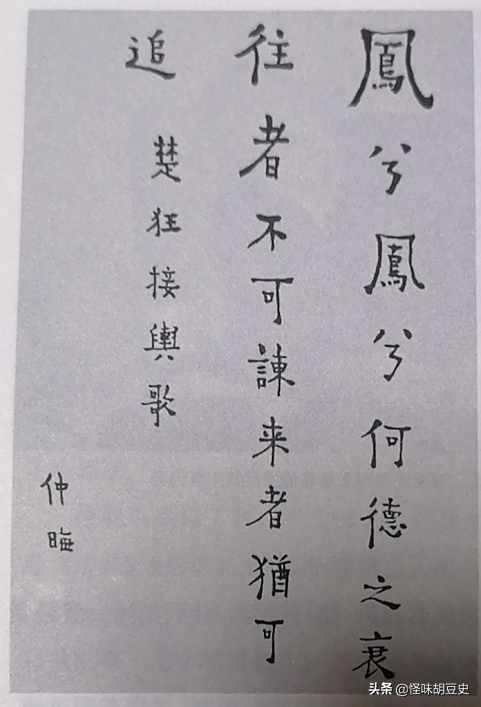 鳳兮鳳兮何德之衰
往者不可諫来者猶可
追
楚狂接輿歌
仲晦
头条 @怪味胡豆史